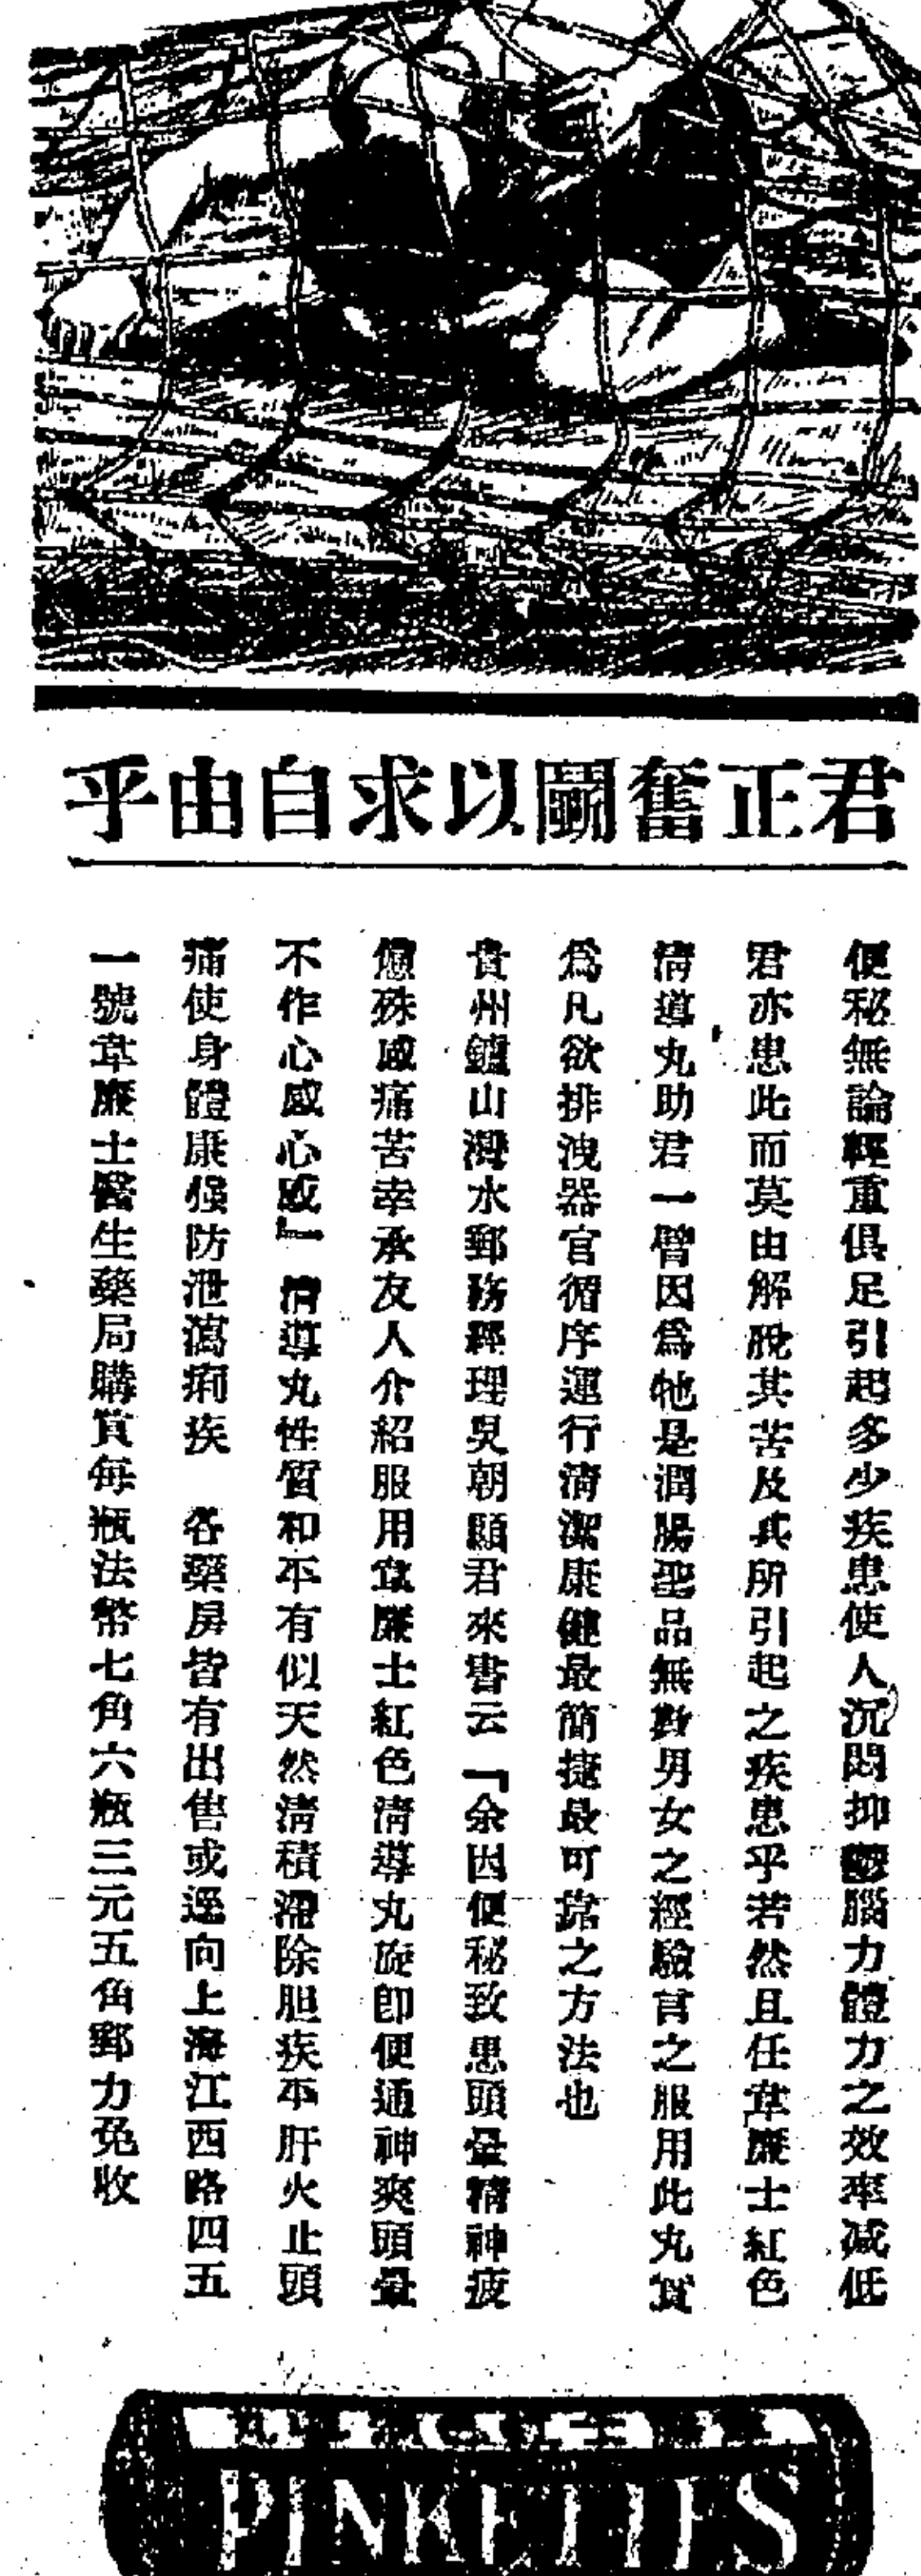 君正奮鬭以求自由乎
便秘無論輕重俱足引起多少疾患使人沉悶抑鬱腦力體力之效率减低
君亦患此而莫由解脫其苦及其所引起之疾患乎若然且任韋廉士紅色
清導丸助君一臂因爲牠是潤腸聖品無數男女之經驗言之服用此丸實
爲凡欲排洩器官循序運行清潔康健最簡捷最可靠之方法也
貴州鑪山灣水郵務經理吳朝顯君來書云『余因便秘致患頭暈精神疲
憊殊感痛苦幸承友人介紹服用韋廉士紅色清導丸旋卽便通神爽頭暈
不作心感心感』清導丸性質和平有似天然清積滯除胆疾平肝火止頭
痛使身體康强防泄瀉痢疾 各藥房皆有出售或逕向上海江西路四五
一號韋廉士醫生藥局購買每瓶法幣七角六瓶三元五角郵力免收
PINKETTES